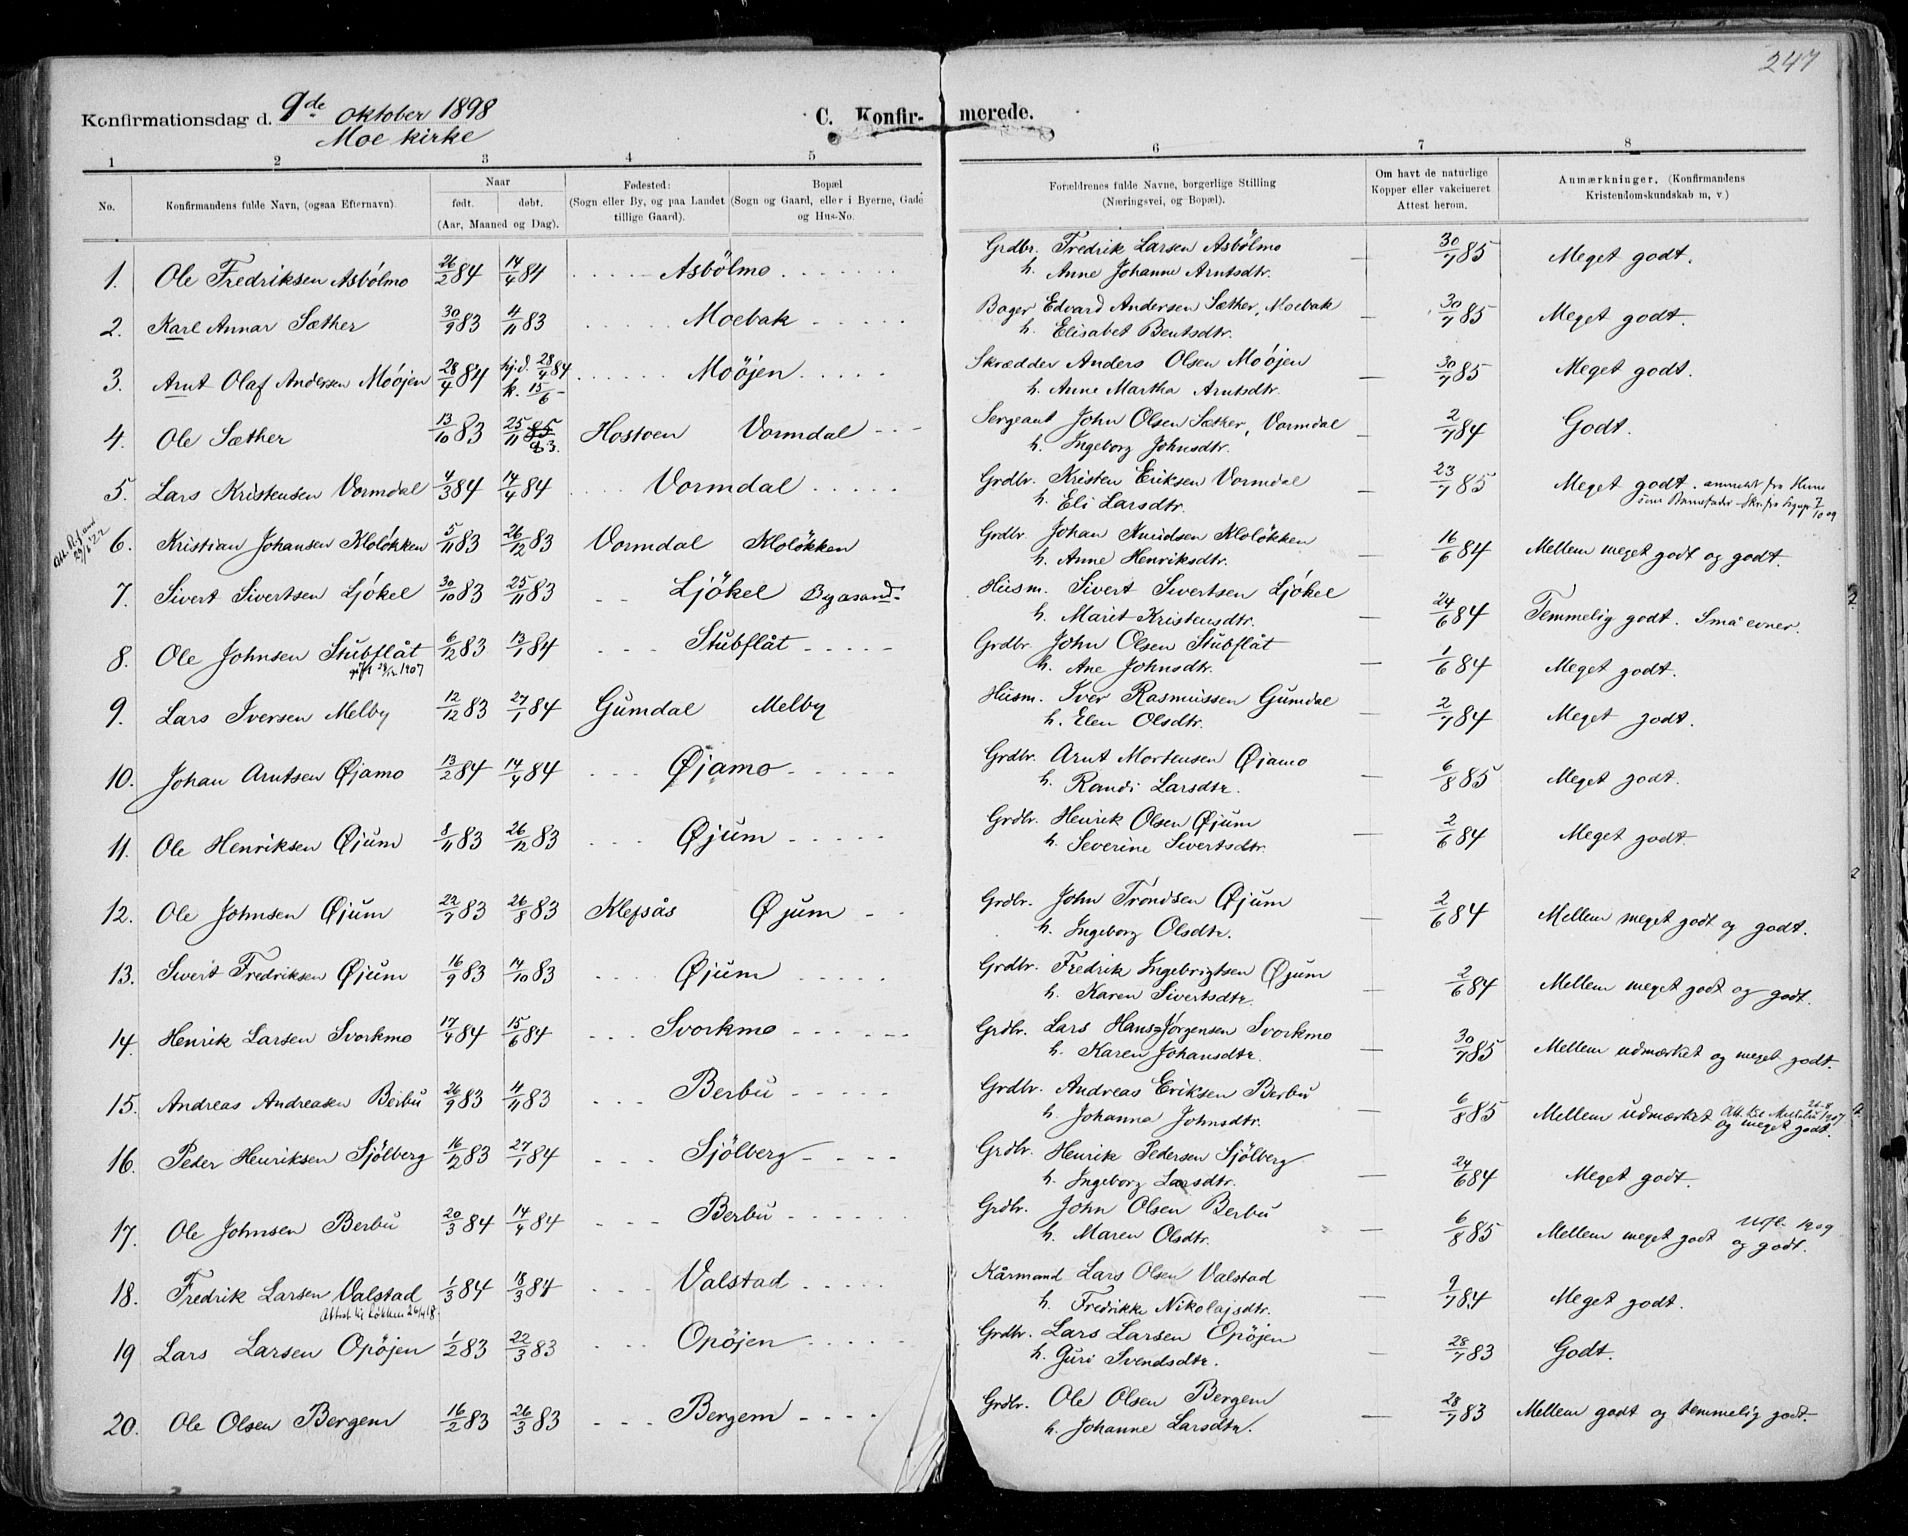 247
Konfirmationsdag d. 9de oktober 1898
Moe kirke
C. Konfirmerede.
1 2 3 4 5 6 7 8
No. Konfirmandens fulde Navn, (ogsaa Efternavn). Naar født. døbt. (Aar, Maaned og Dag). Fødested: (Sogn eller By, og paa Landet tillige Gaard). Bopæl (Sogn og Gaard, eller i Byerne, Gade og Hus-No. Forældrenes fulde Navne, borgerlige Stilling (Næringsvei, og Bopæl). Om havt de naturlige Kopper eller vakcineret. Attest herom. Anmærkninger. (Konfirmandens Kristendomskundskab m, v.)
1. Ole Fredriksen Asbölmo 26/2 84 14/4 84 Asbölmo Grdbr. Fredrik Larsen Asbölmo — 30/7 85 Meget godt.
h. Anne Johanne Arntsdtr.
2. Karl Annar Sæther 30/9 83 4/11 83 Moebak Bager Edvard Andersen Sæther, Moebak — 30/7 85 Meget godt.
h. Elisabet Bentsdtr.
3. Arnt Olaf Andersen Moöjen 28/4 84 hj.d. 28/4 84 k. 15/6 - Moöjen Skrædder Anders Olsen Moöjen — 30/7 85 Meget godt.
h. Anne Martha Arntsdtr.
4. Ole Sæther 13/10 83 25/11 85 83. Hostoen Vormdal Sergeant John Olsen Sæther, Vormdal — 2/7 84 Godt.
h. Ingeborg Johnsdtr.
5. Lars Kristensen Vormdal 4/3 84 14/4 84 Vormdal Grdbr. Kristen Eriksen Vormdal — 23/7 85 Meget godt. anmeldt fra Hevne
h. Eli Larsdtr. som Barnefader
6. Kristian Johansen Kloløkken 5/11 83 26/12 83 Vormdal Kloløkken Grdbr. Johan Knudsen Kloløkken — 16/6 84 Mellem meget godt og godt.
h. Anne Henriksdtr.
7. Sivert Sivertsen Ljökel 30/10 83 25/11 83 Ljökel Byasand Husm. Sivert Sivertsen Ljökel — 24/6 84 Temmelig godt. Små evner.
h. Marit Kristensdtr.
8. Ole Johnsen Stubflåt 6/12 83 13/1 84 Stubflåt Grdbr. John Olsen Stubflåt — 1/6 84 Meget godt.
gift 28/12 1907 h. Ane Johnsdtr.
9. Lars Iversen Melby 12/12 83 27/1 84 Gumdal Melby Husm. Iver Rasmussen Gumdal — 2/7 84 Meget godt.
h. Elen Olsdtr.
10. Johan Arntsen Øjamo 13/2 84 14/4 84 Øjamo Grdbr. Arnt Mortensen Øjamo — 6/8 85 Meget godt.
h. Randi Larsdtr.
11. Ole Henriksen Øjum 8/11 83 26/12 83 Øjum Grdbr. Henrik Olsen Øjum — 2/6 84 Meget godt.
h. Severine Sivertsdtr.
12. Ole Johnsen Øjum 22/7 83 26/8 83 Klefsås Øjum Grdbr. John Tröndsen Øjum — 2/6 84 Mellem meget godt og godt.
h. Ingeborg Olsdtr.
13. Sivert Fredriksen Øjum 16/9 83 14/10 83 Øjum Grdbr. Fredrik Ingebrigtsen Øjum — 2/6 84 Mellem meget godt og godt.
h. Karen Sivertsdtr.
14. Henrik Larsen Svorkmo 17/4 84 15/6 84 Svorkmo Grdbr. Lars Hans=Jørgensen Svorkmo — 30/7 85 Mellem udmærket og meget godt.
h. Karen Johansdtr.
15. Andreas Andreasen Berbu 26/9 83 4/11 83 Berbu Grdbr. Andreas Eriksen Berbu — 6/8 85 Mellem udmærket og meget godt.
h. Johanna Johnsdtr.
16. Peder Henriksen Sjölberg 16/12 83 27/1 84 Sjölberg Grdbr. Henrik Pedersen Sjölberg — 24/6 84 Meget godt.
h. Ingeborg Larsdtr.
17. Ole Johnsen Berbu 20/3 84 14/4 84 Berbu Grdbr. John Olsen Berbu — 6/8 85 Mellem meget godt og godt. Utfl. 1909
h. Maren Olsdtr.
18. Fredrik Larsen Valstad 1/3 84 18/3 84 Valstad Kårmand Lars Olsen Valstad — 9/7 84 Meget godt.
Attest til Løkken 26/4 18. h. Fredrikke Nikolajsdtr.
19 Lars Larsen Opöjen 1/2 83 22/3 83 Opöjen Grdbr. Lars Larsen Opöjen — 28/7 83 Godt.
h. Guri Svendsdtr.
20. Ole Olsen Bergem 16/2 83 26/3 83 Bergem Grdbr. Ole Olsen Bergem — 28/7 83 Mellem godt og temmelig godt
h. Johanne Larsdtr.